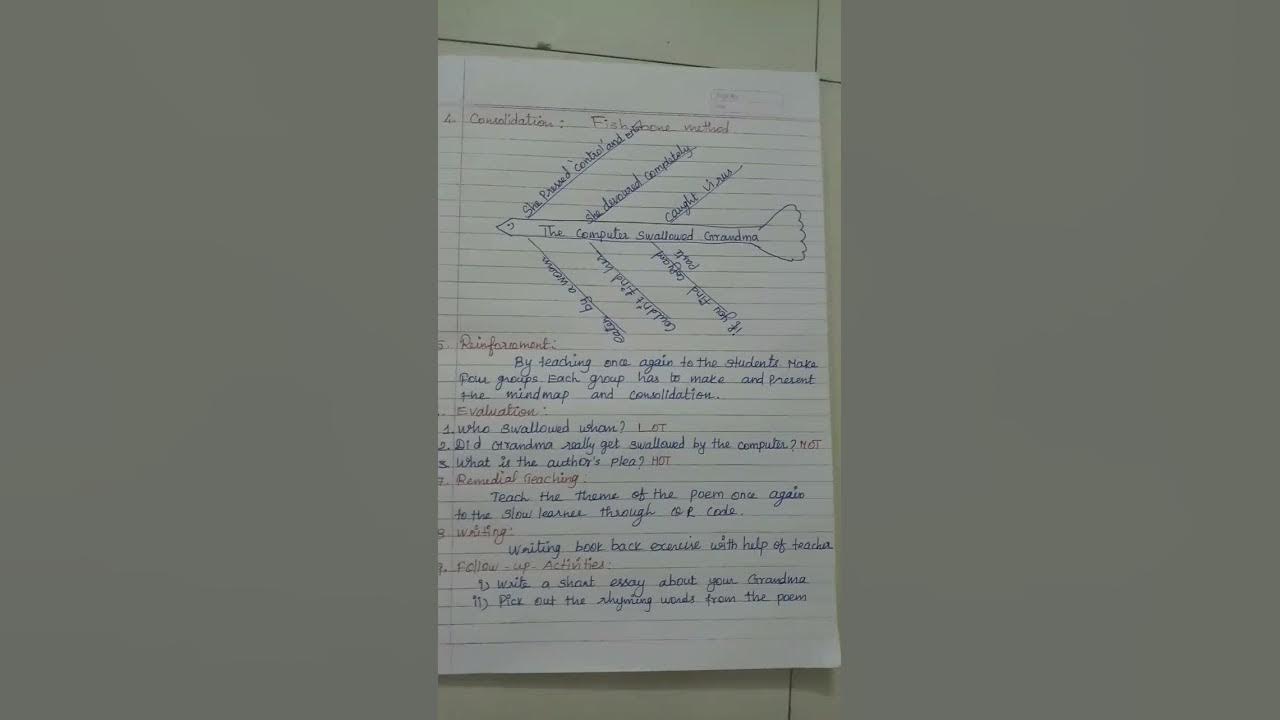 4. Consolidation: Fish bone method
She Pressed 'control' and
She devoured completely
caught virus
The Computer Swallowed Grandma
eaten by a worm
Couldn't find her
if you find copy and paste
5. Reinforcement:
By teaching once again to the students. Make
Four groups. Each group has to make and present
the mindmap and consolidation.
Evaluation:
1. Who swallowed whom? LOT
2. Did Grandma really get swallowed by the computer? HOT
3. What is the author's plea? HOT
7. Remedial Teaching:
Teach the theme of the poem once again
to the slow learner through QR code.
8. Writing:
Writing book back exercise with help of teacher
9. Follow-up-Activities:
i) Write a short essay about your Grandma
ii) Pick out the rhyming words from the poem